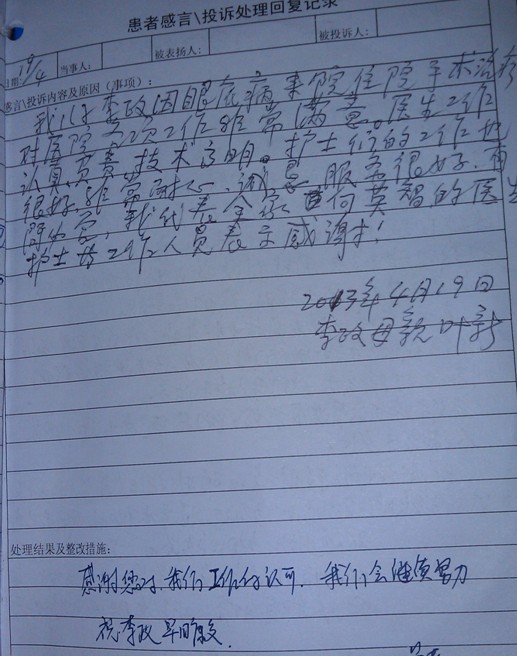 患者感言\投诉处理回复记录
日期 19/4 当事人: 被表扬人: 被投诉人:
感言\投诉内容及原因(事项):
我儿子李政因眼底病来院住院手术治疗
对医院各项工作非常满意。医生工作
认真负责,技术高明。护士们的工作也
很好非常耐心、满意,服务很好,有
我代表全家向英智的医生
护士等工作人员表示感谢!
2013年4月19日
李政母亲叶新
处理结果及整改措施:
感谢您对我们工作的认可,我们会继续努力
祝李政早日康复.